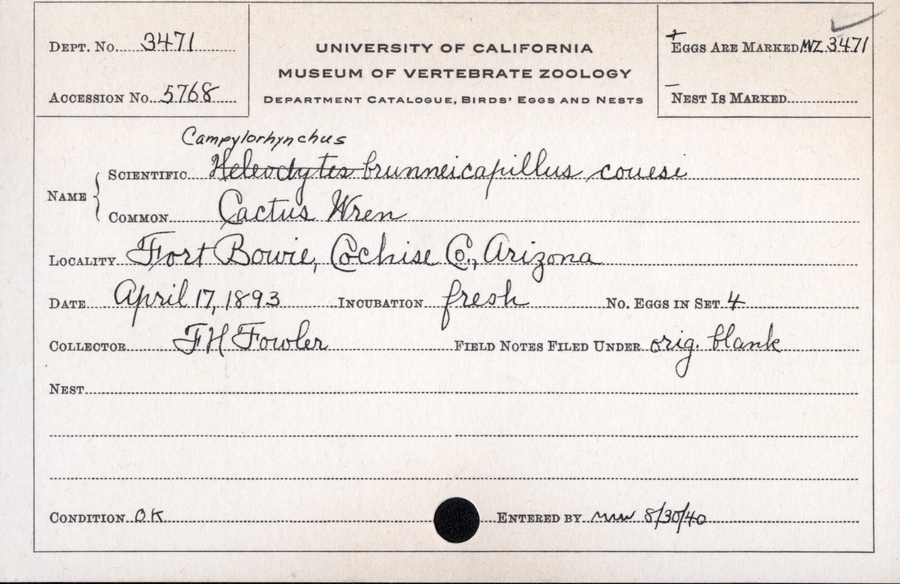 Dept. No. 3471
Accession No. 5768
UNIVERSITY OF CALIFORNIA
MUSEUM OF VERTEBRATE ZOOLOGY
Department Catalogue, Birds' Eggs and Nests
+ Eggs Are Marked MVZ 3471
- Nest Is Marked
Campylorhynchus
Name { Scientific Heleodytes brunneicapillus couesi
Common Cactus Wren
Locality Fort Bowie, Cochise Co., Arizona
Date April 17, 1893 Incubation fresh No. Eggs in Set 4
Collector F H Fowler Field Notes Filed Under orig. blank
Nest
Condition OK Entered by 8/30/40